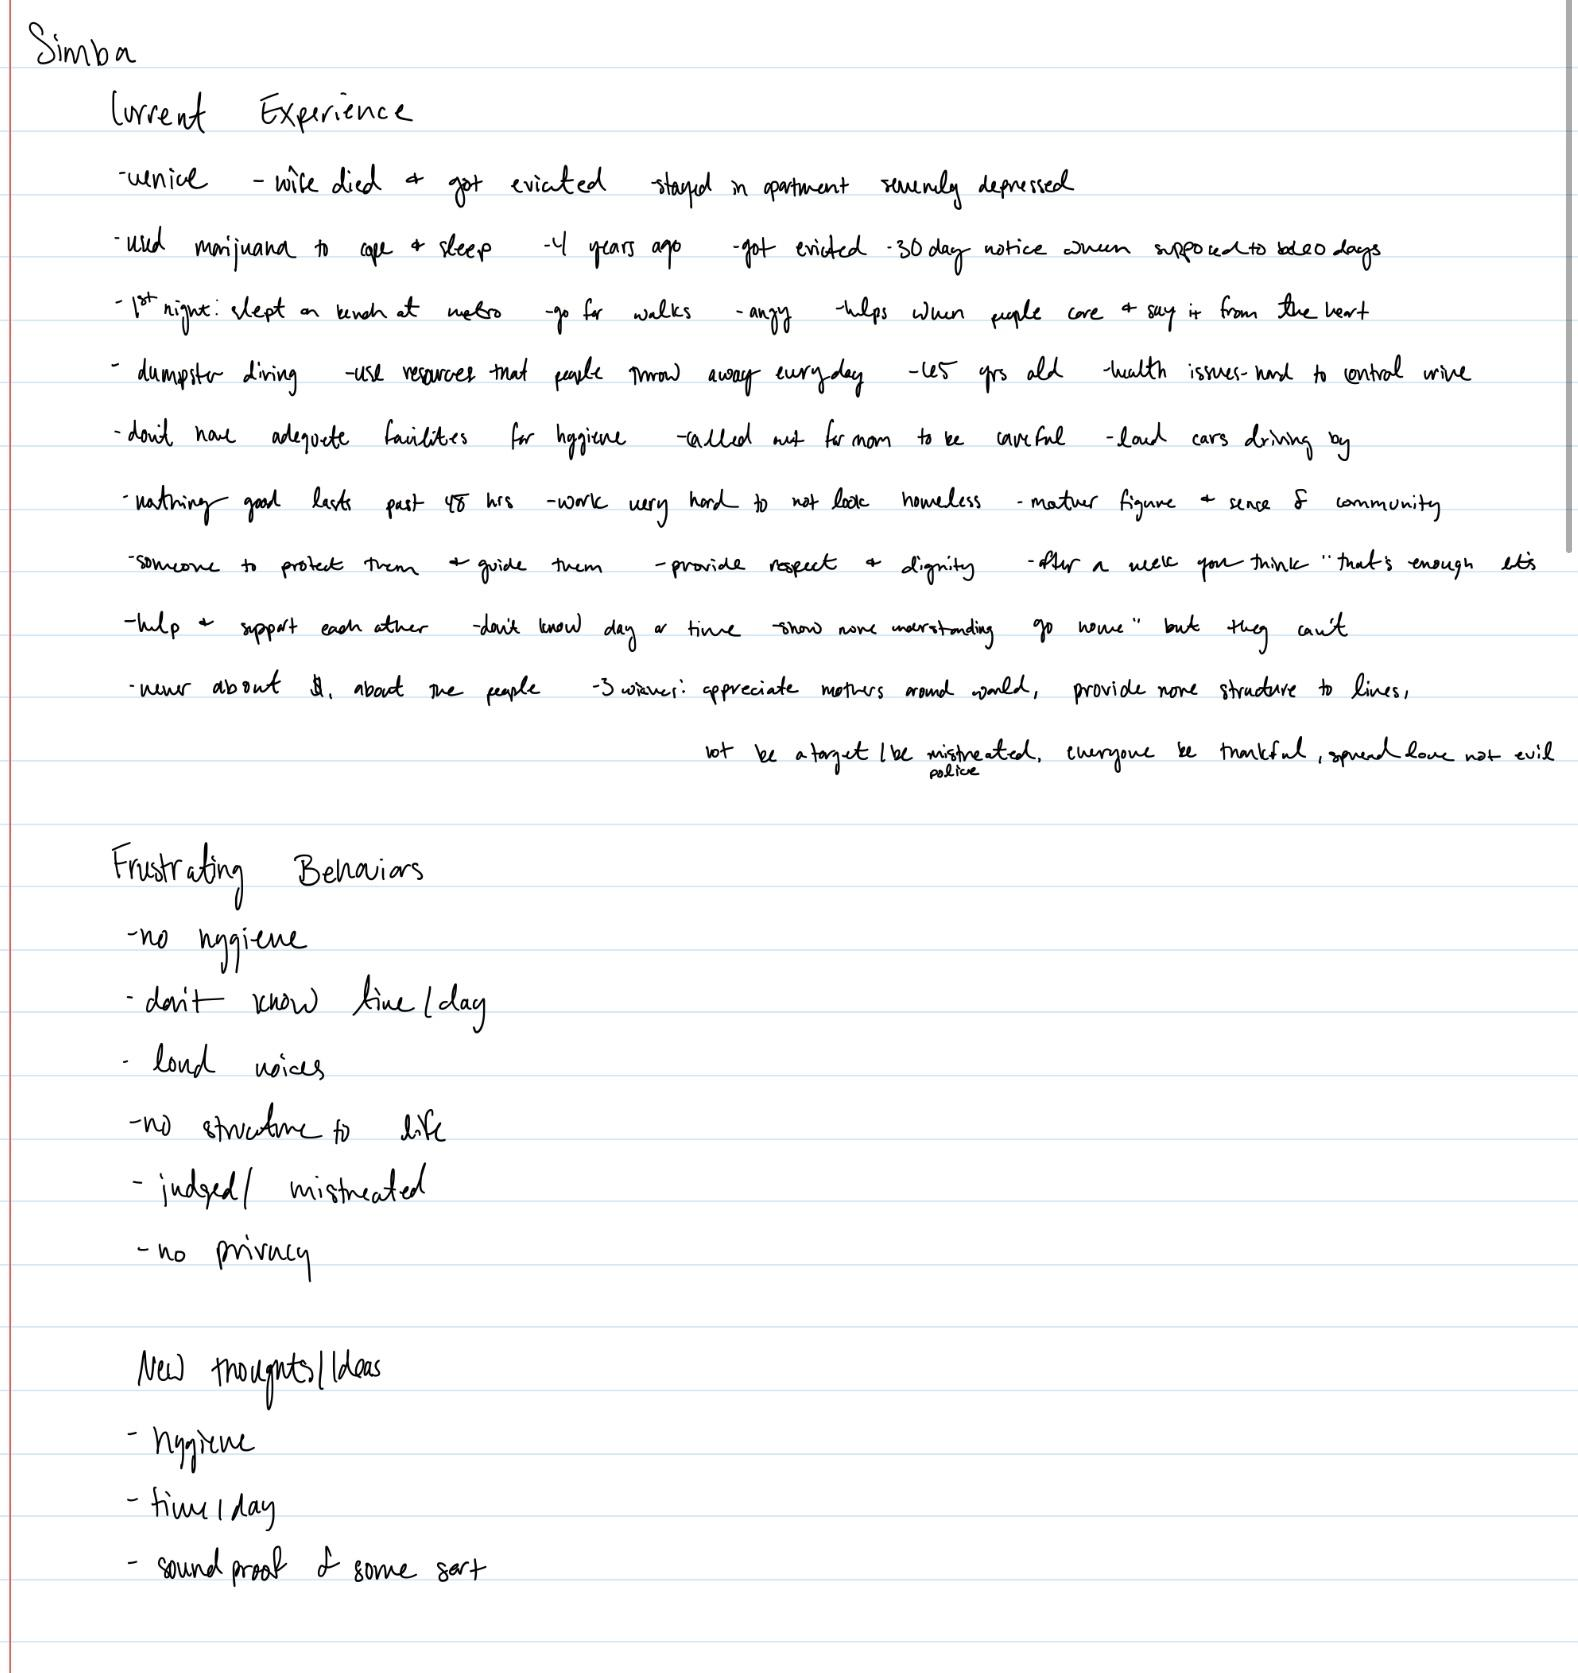 Simba
Current Experience
-venice - wife died + got evicted -stayed in apartment severely depressed
-used marijuana to cope + sleep -4 years ago -got evicted -30 day notice when supposed to be 20 days
-1st night: slept on bench at metro -go for walks -angy -helps when people care + say it from the heart
- dumpster diving -use resources that people throw away everyday -65 yrs old -health issues-hard to control urine
-don't have adequete facilities for hygiene -called out for mom to be careful -loud cars driving by
-nothing good lasts past 48 hrs -work very hard to not look homeless -mother figure + sence of community
-someone to protect them + guide them -provide respect + dignity -after a week you think "that's enough let's
-help + support each other -don't know day or time -show more understanding go home" but they can't
-never about $, about the people -3 wishes: appreciate mothers around world, provide more structure to lives,
not be a target / be mistreated, everyone be thankful, spread love not evil
police
Frustrating Behaviors
-no hygiene
-don't know time/day
- loud noices
-no structure to life
- judged/ mistreated
-no privacy
New thoughts/Ideas
- hygiene
- time/day
- sound proof of some sort